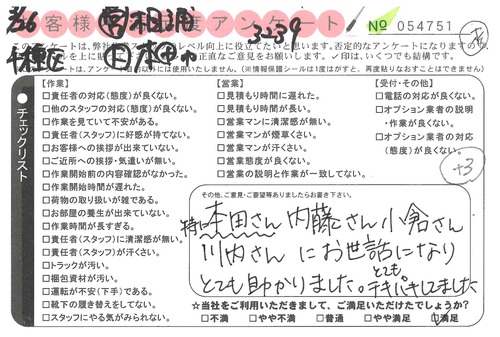 お客様満足度アンケート
№ 054751
このアンケートは、弊社サービスのレベル向上に役立てたいと思います。否定的なアンケートになりますので、
アンケート以外には使用いたしません。(※情報保護シールは1度はがすと、再度貼りなおすことはできません)
チェックリスト
【作業】
□責任者の対応(態度)が良くない。
□他のスタッフの対応(態度)が良くない。
□作業を見ていて不安がある。
□責任者(スタッフ)に好感が持てない。
□お客様への挨拶が出来ていない。
□ご近所への挨拶・気遣いが無い。
□作業開始前の内容確認がなかった。
□作業開始時間が遅れた。
□荷物の取り扱いが雑である。
□お部屋の養生が出来ていない。
□作業時間が長すぎる。
□責任者(スタッフ)に清潔感が無い。
□責任者(スタッフ)が汗くさい。
□トラックが汚い。
□梱包資材が汚い。
□運転が不安(下手)である。
□靴下の履き替えをしてない。
□スタッフにやる気がみられない。
【営業】
□見積もり時間に遅れた。
□見積もり時間が長い。
□営業マンに清潔感が無い。
□営業マンが煙草くさい。
□営業マンが汗くさい。
□営業態度が良くない。
□営業の説明と作業が一致してない。
【受付・その他】
□電話の対応が良くない。
□オプション業者の説明
・作業が良くない。
□オプション業者の対応
(態度)が良くない。
+3
その他、ご意見・ご要望等ありましたらお書き下さい。
特に本田さん 内藤さん 小倉さん
川内さん にお世話になり
とても助かりました。とてもテキパキしてました
☆当社をご利用いただきまして、ご満足いただけたでしょうか?
□不満 □やや不満 □普通 □やや満足 □満足